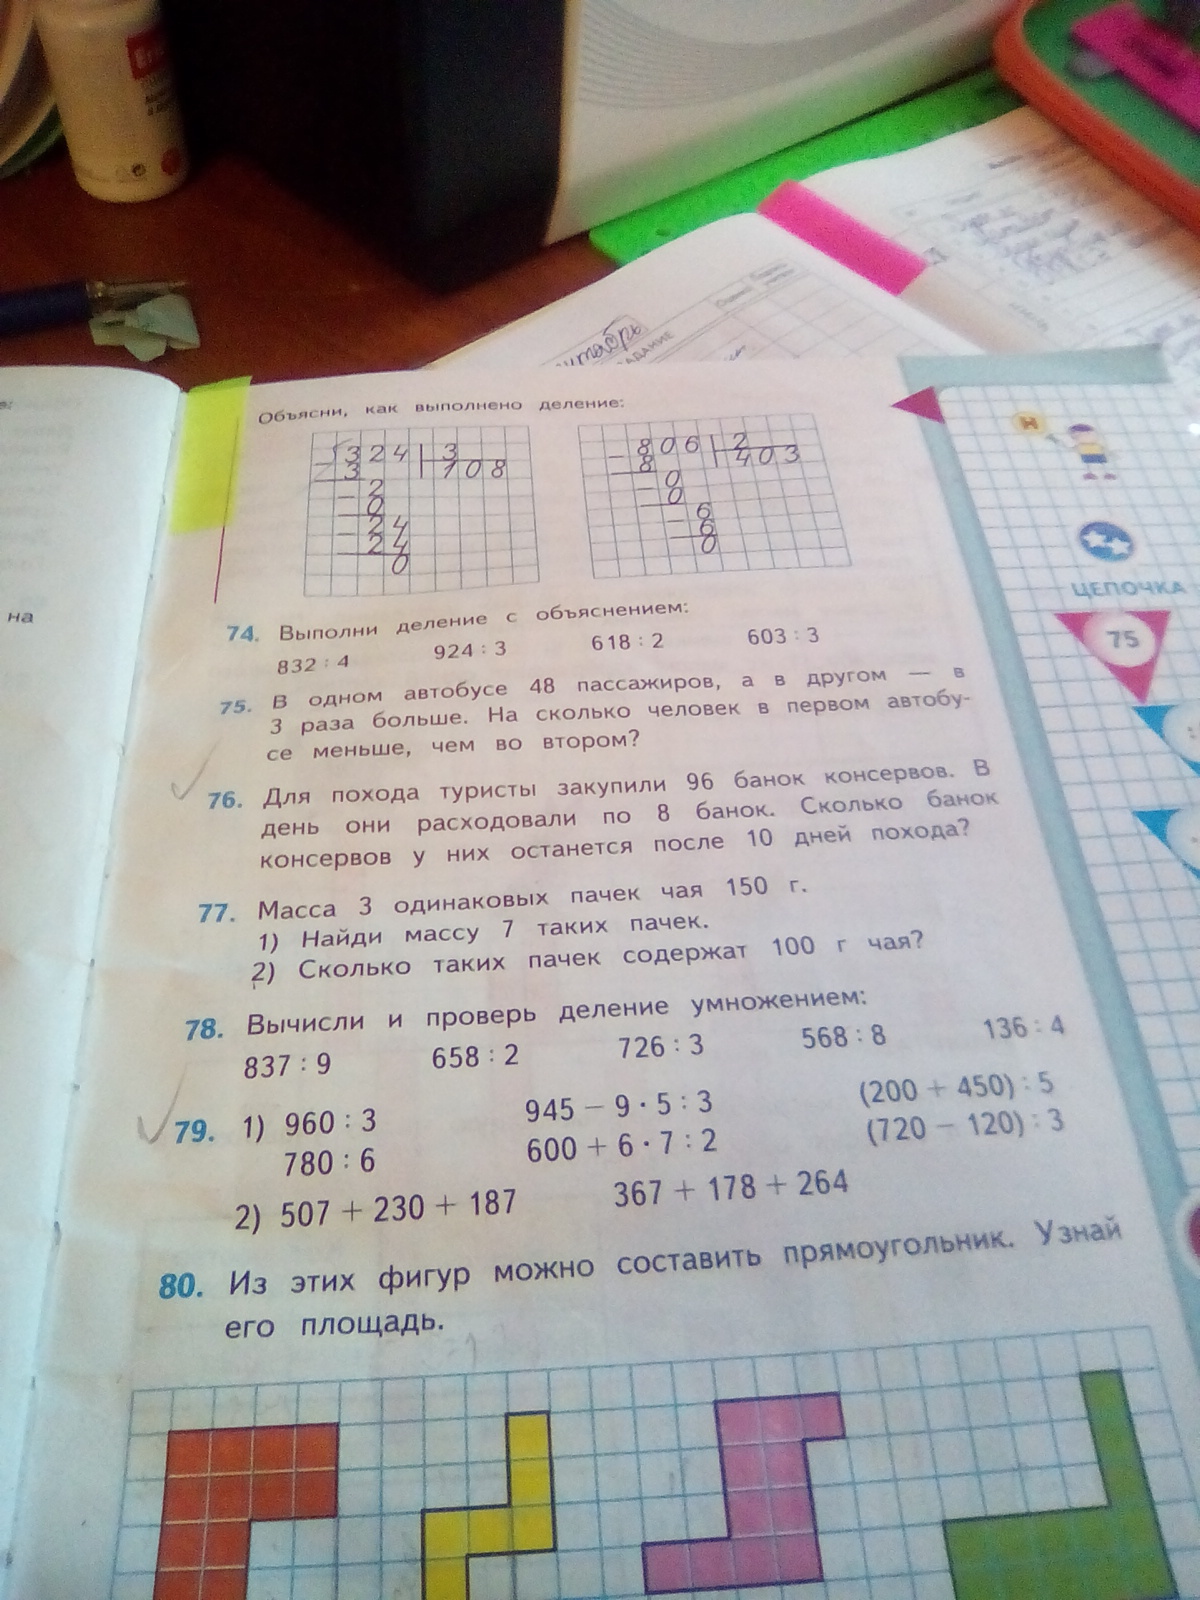 нтябрь
АДАНИЕ
на
Объясни, как выполнено деление:
324 3
3 108
2
0
24
24
0
806 2
8 403
0
0
6
6
0
Н
ЦЕПОЧКА
75
74. Выполни деление с объяснением:
832 : 4 924 : 3 618 : 2 603 : 3
75. В одном автобусе 48 пассажиров, а в другом — в
3 раза больше. На сколько человек в первом автобу-
се меньше, чем во втором?
76. Для похода туристы закупили 96 банок консервов. В
день они расходовали по 8 банок. Сколько банок
консервов у них останется после 10 дней похода?
77. Масса 3 одинаковых пачек чая 150 г.
1) Найди массу 7 таких пачек.
2) Сколько таких пачек содержат 100 г чая?
78. Вычисли и проверь деление умножением:
837 : 9 658 : 2 726 : 3 568 : 8 136 : 4
79. 1) 960 : 3 945 − 9 · 5 : 3 (200 + 450) : 5
780 : 6 600 + 6 · 7 : 2 (720 − 120) : 3
2) 507 + 230 + 187 367 + 178 + 264
80. Из этих фигур можно составить прямоугольник. Узнай
его площадь.